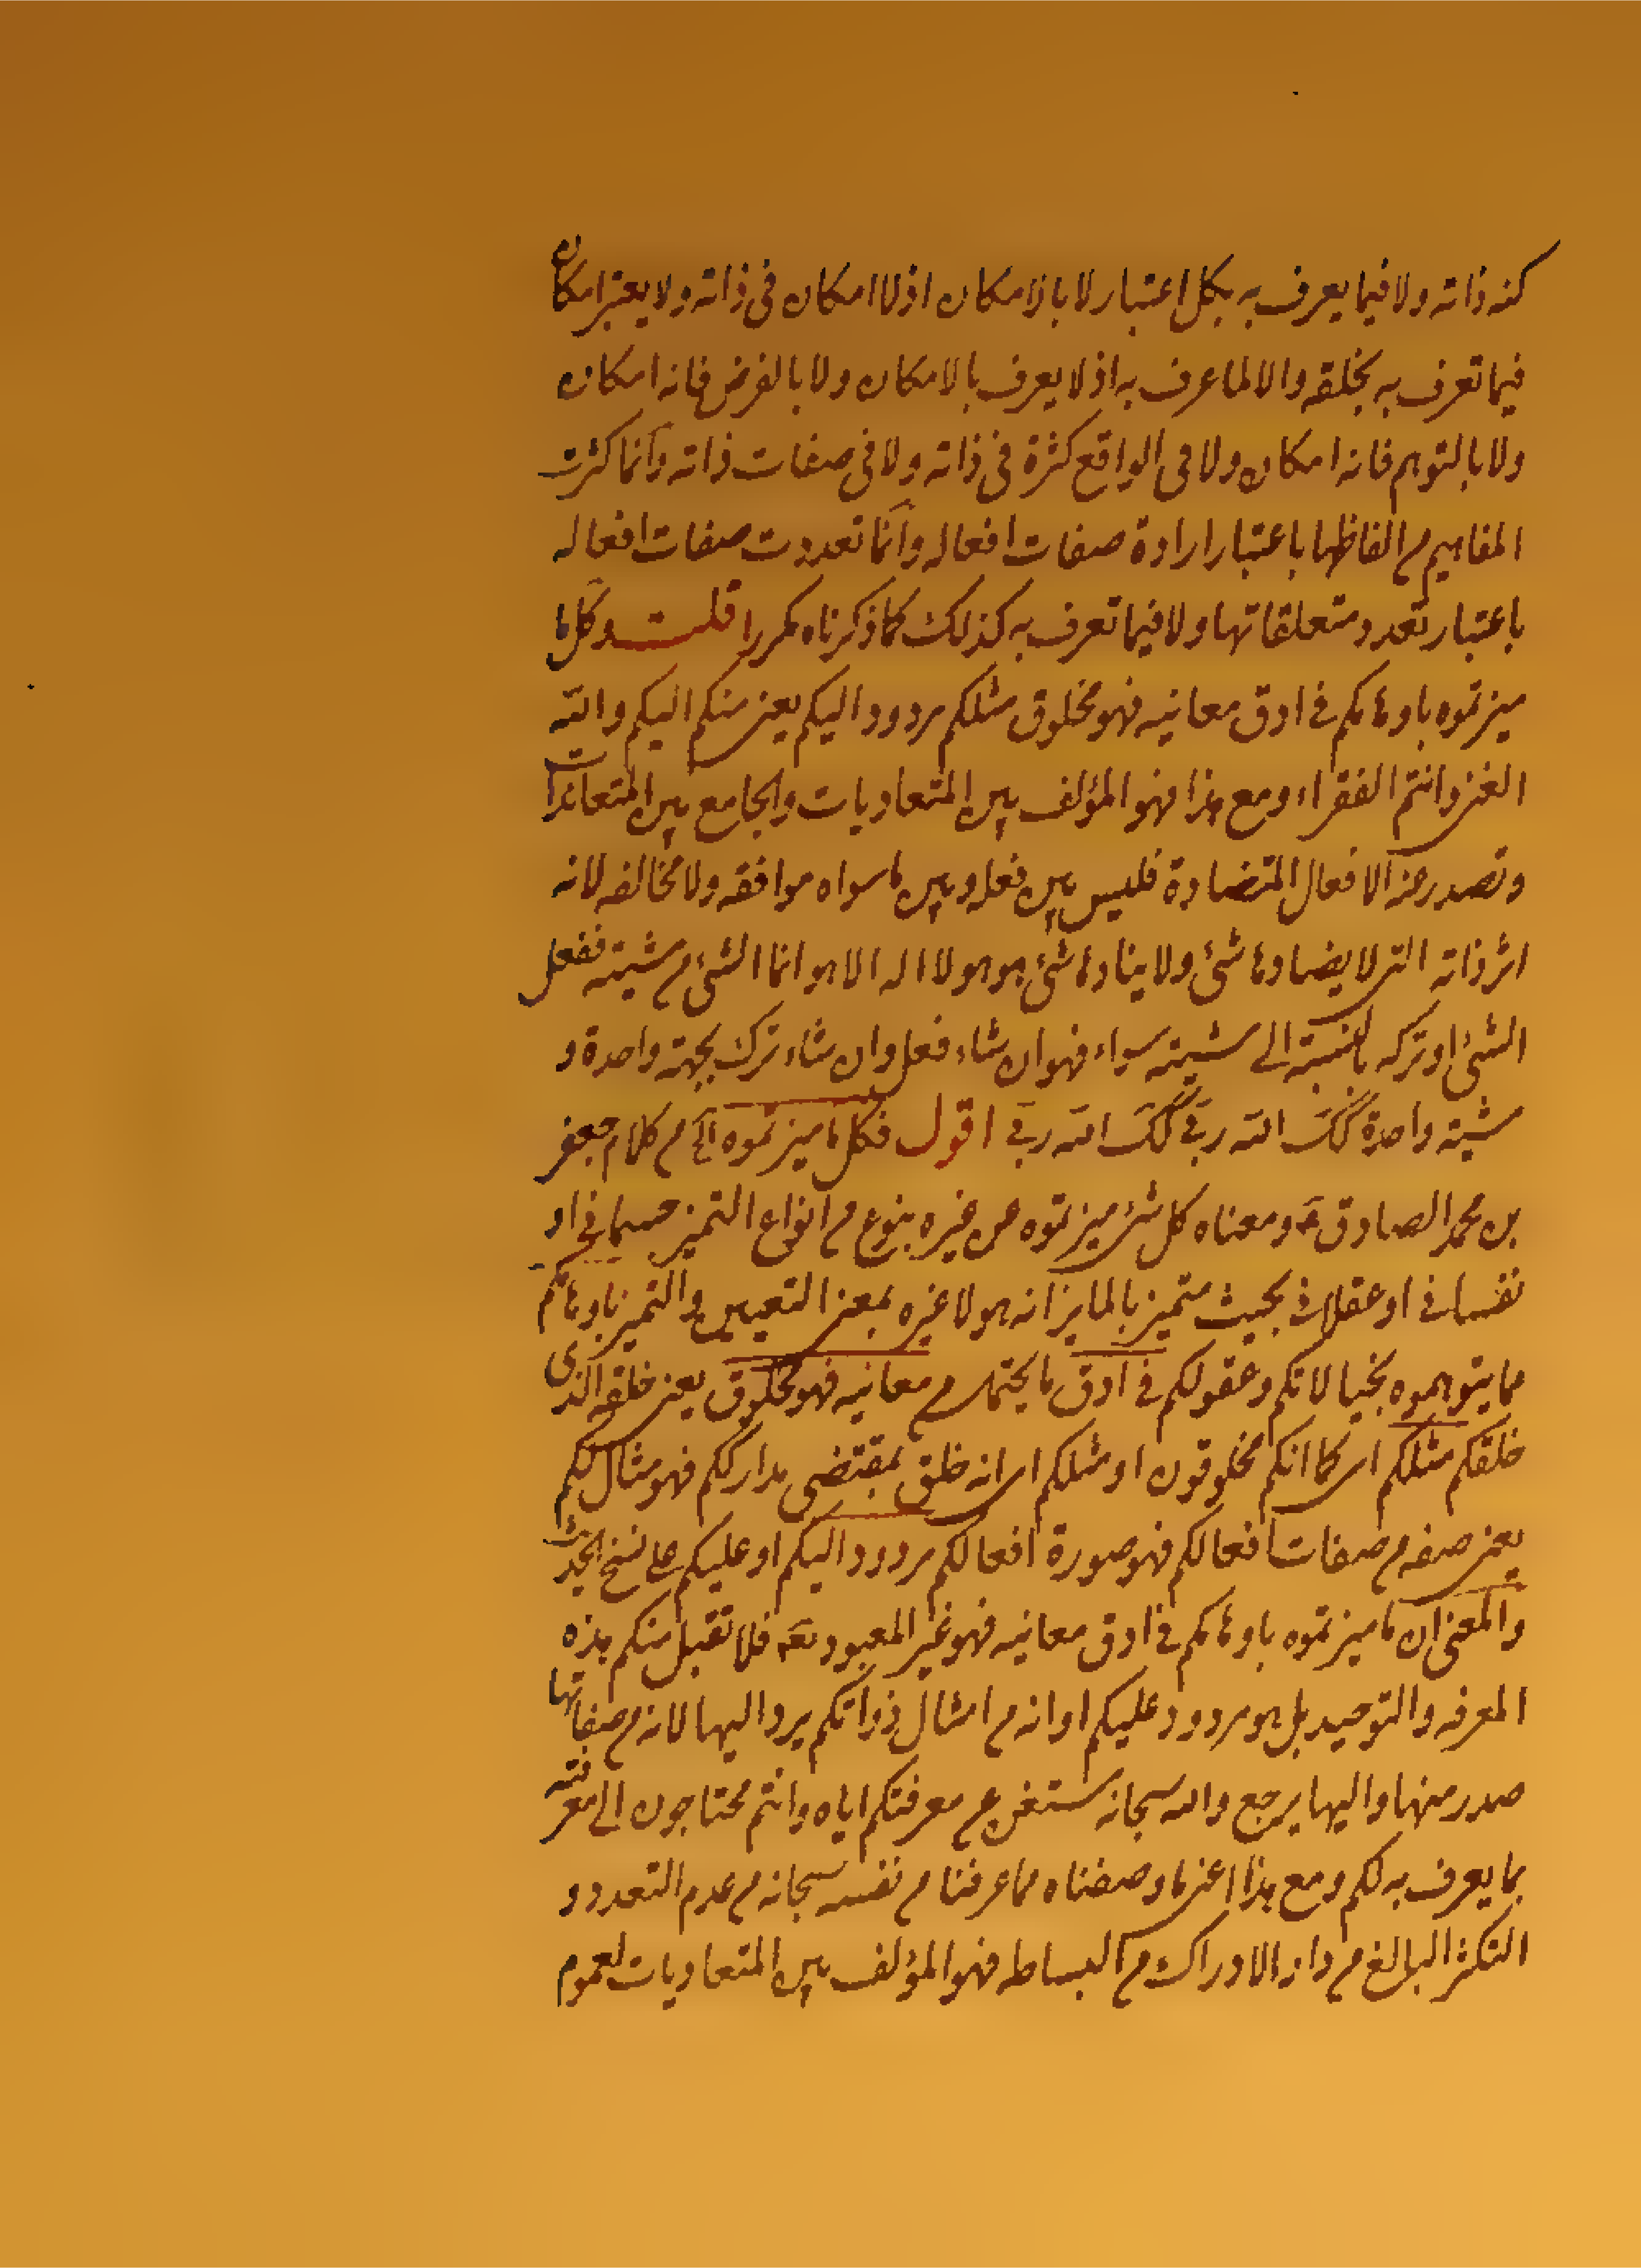 كنه ذاته ولا فيما يعرف به بكل اعتبار لا بالامكان اذ لا امكان فى ذاته ولا يعتبر امكان
فيما تعرف به بخلقه والا لما عرف به اذ لا يعرف بالامكان ولا بالفرض فانه امكان
ولا بالتوهم فانه امكان ولا فى الواقع كثرة فى ذاته ولا فى صفات ذاته وانما كثرت
المفاهيم من الفاظها باعتبار ارادة صفات افعاله وانما تعددت صفات افعاله
باعتبار تعدد متعلقاتها ولا فيما تعرف به كذلك كما ذكرناه مكررا قلت وكل ما
ميزتموه باوهامكم فى ادق معانيه فهو مخلوق مثلكم مردود اليكم يعنى منكم اليكم والله
الغنى وانتم الفقراء ومع هذا فهو المؤلف بين المتعاديات والجامع بين المتعاندات
وتصدر عنه الافعال المتضادة فليس بين فعله وبين ما سواه موافقه ولا مخالفه لانه
اثر ذاته التى لا يضادها شئ ولا ينادها شئ هو هو لا اله الا هو انما الشئ من مشيته ففعل
الشئ او تركه بالنسبة الى مشيته سواء فهو ان شاء فعل وان شاء ترك بجهة واحدة و
مشية واحدة كذلك الله ربى كذلك الله ربى اقول فكل ما ميزتموه الخ من كلام جعفر
بن محمد الصادق ع ومعناه كل شئ ميزتموه عن غيره بنوع من انواع التميز جسمانى او
نفسانى او عقلانى بحيث متميز بالمايز انه هو لا غيره بمعنى التعيين والتميز باوهامكم
مما يتوهموه بخيالاتكم وعقولكم فى ادق ما يحتمل من معانيه فهو مخلوق يعنى خلقه الذى
خلقكم مثلكم اى كما انكم مخلوقون او مثلكم اى انه خلق بمقتضى مدارككم فهو مثال لكم
يعنى صفه من صفات افعالكم فهو صورة افعالكم مردود اليكم او عليكم على نسخ الحديث
والمعنى ان ما ميزتموه باوهامكم فى ادق معانيه فهو غير المعبود تعه فلا تقبل منكم هذه
المعرفه والتوحيد بل هو مردود عليكم او انه من امثال ذواتكم يرد اليها لانه من صفاتها
صدر منها واليها يرجع والله سبحانه مستغن عن معرفتكم اياه وانتم محتاجون الى معرفته
بما يعرف به لكم ومع هذا اعنى ما وصفناه مما عرفنا من نفسه سبحانه من عدم التعدد و
التكثر البالغ من دار الادراك من البساطه فهو المؤلف بين المتعاديات لعموم